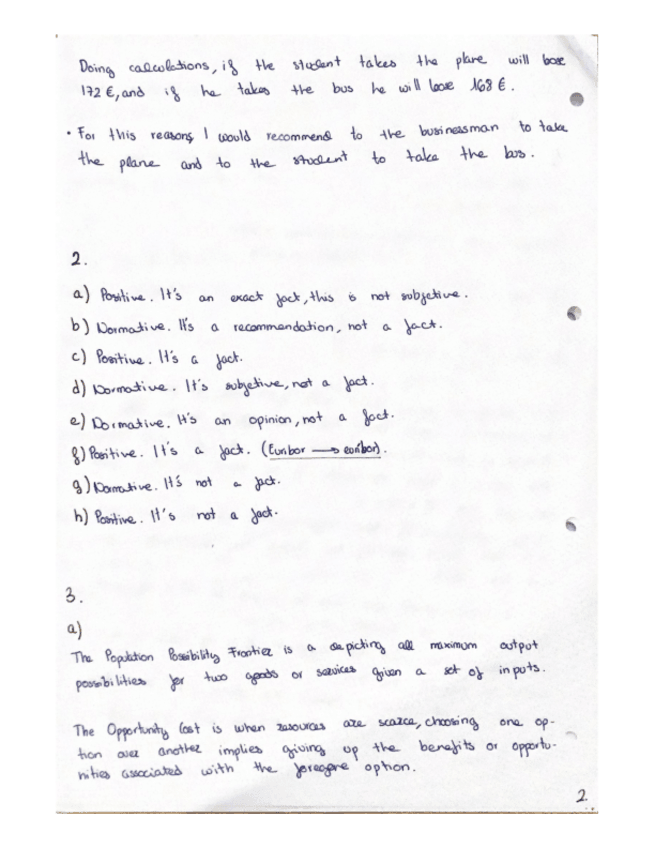 Doing calculations, if the student takes the plane will lose
172 €, and if he takes the bus he will lose 168 €.
· For this reasons I would recommend to the businessman to take
the plane and to the student to take the bus.
2.
a) Positive. It's an exact fact, this is not subjetive.
b) Normative. It's a recommendation, not a fact.
c) Positive. It's a fact.
d) Normative. It's subjetive, not a fact.
e) Normative. It's an opinion, not a fact.
f) Positive. It's a fact. (Euribor → euribor).
g) Normative. It's not a fact.
h) Positive. It's not a fact.
3.
a)
The Population Possibility Frontier is a depicting all maximum output
possibilities for two goods or services given a set of inputs.
The Opportunity Cost is when resources are scarce, choosing one op-
tion over another implies giving up the benefits or opportu-
nities associated with the foregone option.
2